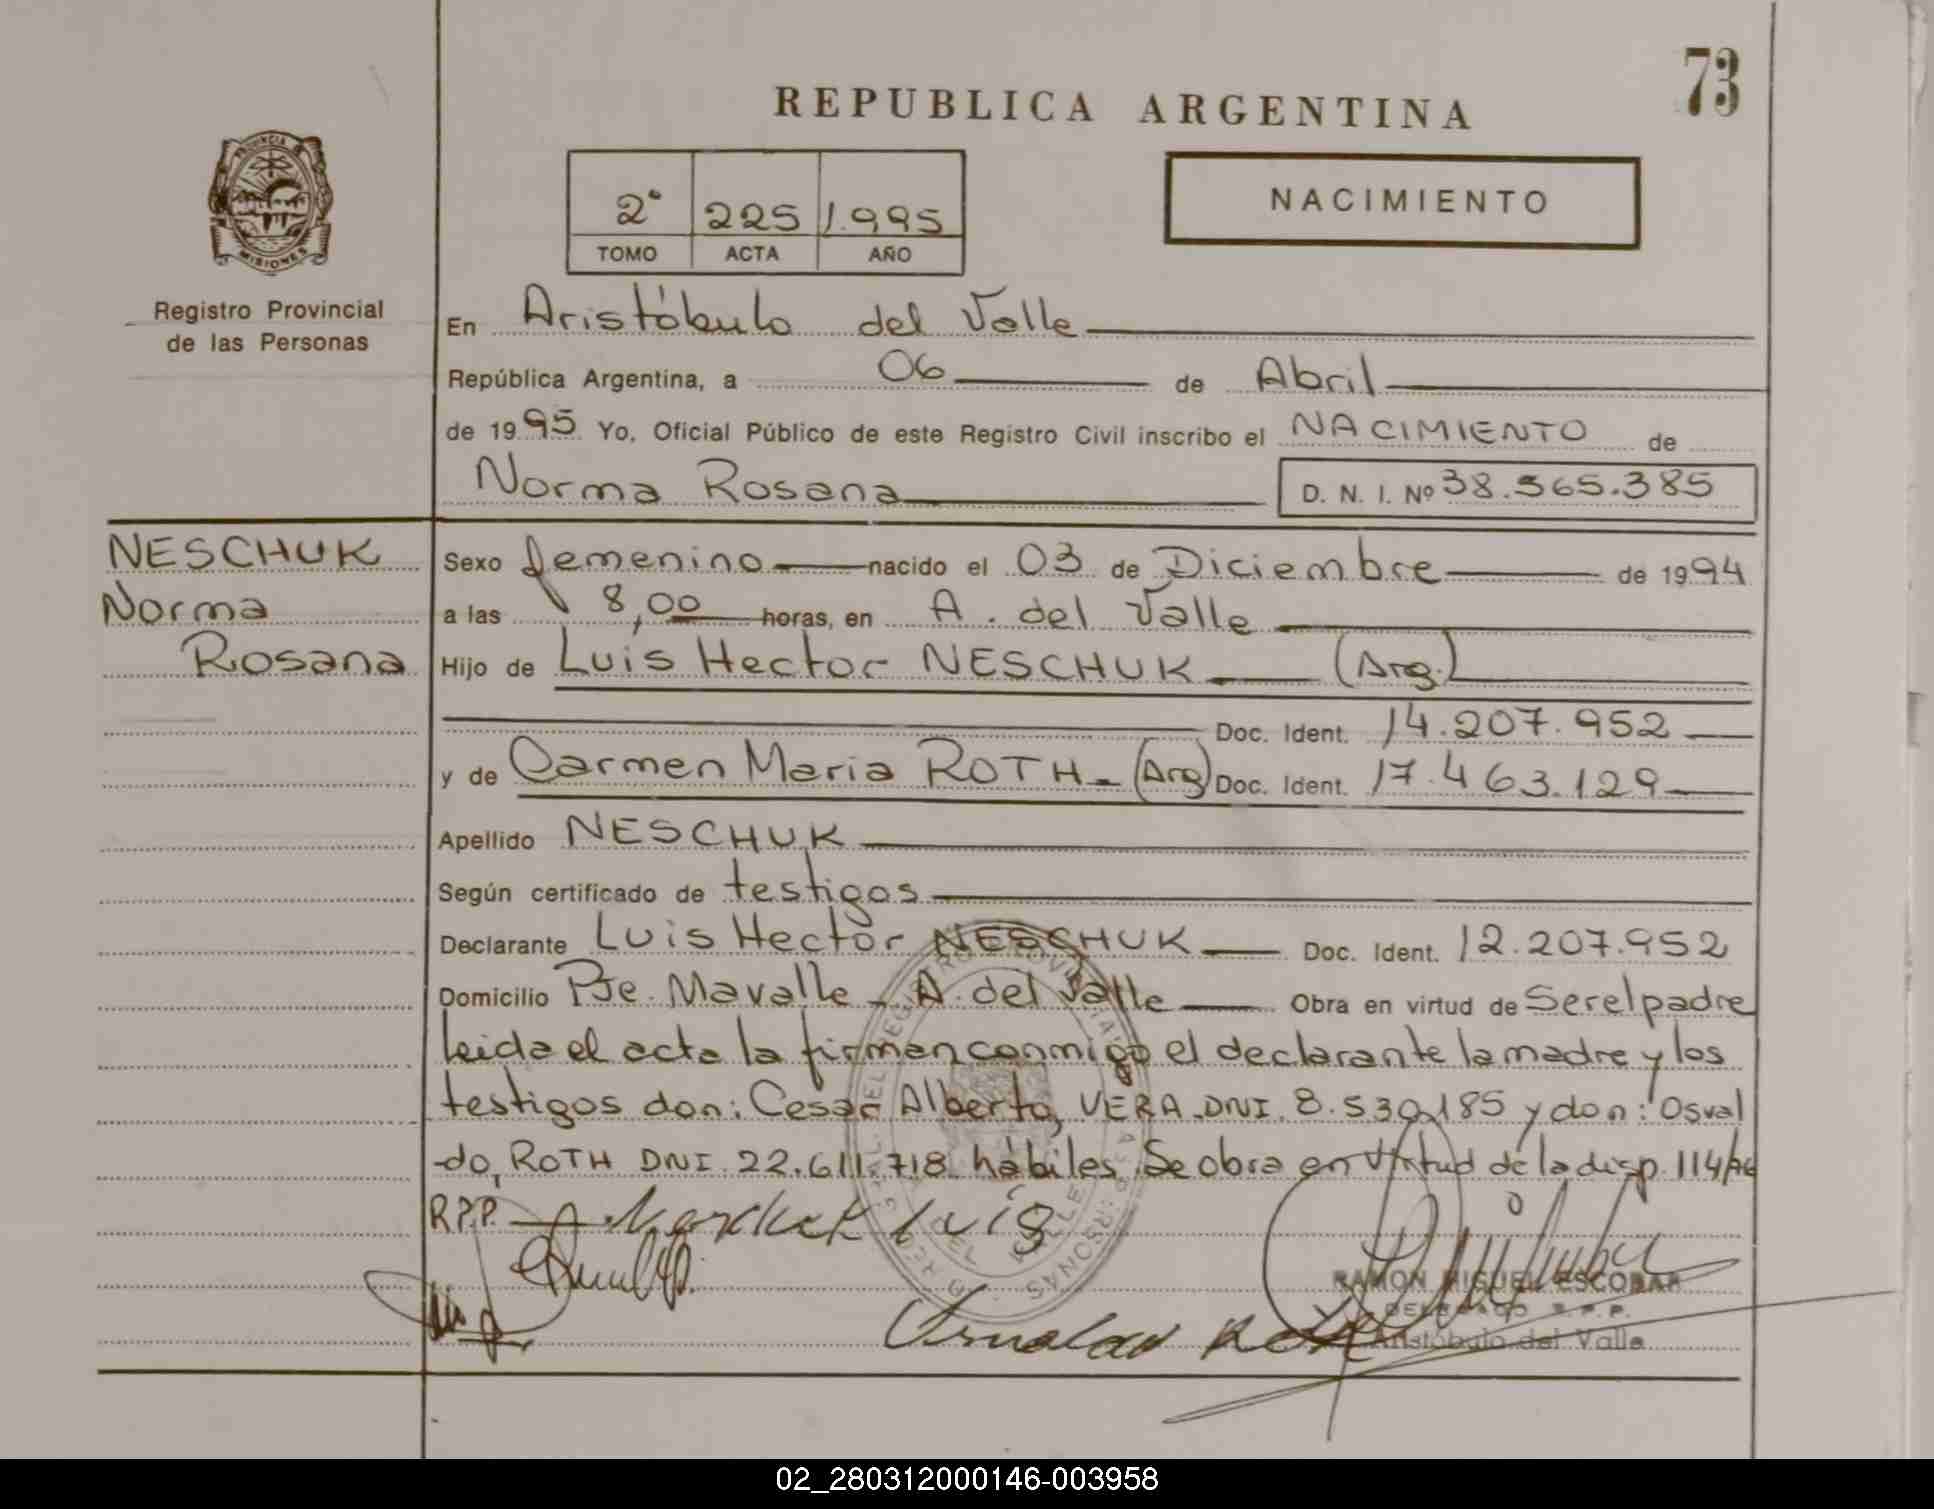 73
REPUBLICA ARGENTINA
PROVINCIA DE
MISIONES
Registro Provincial
de las Personas
2° 225 1.995
TOMO ACTA AÑO
NACIMIENTO
En Aristóbulo del Valle
República Argentina, a 06 de Abril
de 1995 Yo, Oficial Público de este Registro Civil inscribo el NACIMIENTO de
Norma Rosana D. N. I. Nº 38.565.385
NESCHUK
Norma
Rosana
Sexo femenino nacido el 03 de Diciembre de 1994
a las 8,00 horas, en A. del Valle
Hijo de Luis Hector NESCHUK (Arg.)
Doc. Ident. 14.207.952
y de Carmen Maria ROTH (Arg) Doc. Ident. 17.463.129
Apellido NESCHUK
Según certificado de testigos
Declarante Luis Hector NESCHUK Doc. Ident. 12.207.952
Domicilio Pje. Mavalle - A. del Valle Obra en virtud de Ser el padre
leida el acta la firman conmigo el declarante la madre y los
testigos don: Cesar Alberto, VERA. DNI. 8.530.185 y don: Osval
-do, ROTH DNI. 22.611.718 hábiles. Se obra en virtud de la disp. 114/76
R.P.P.
Neschuk Luis
RAMON MIGUEL ESCOBAR
DELEGADO R.P.P.
Aristóbulo del Valle
02_280312000146-003958